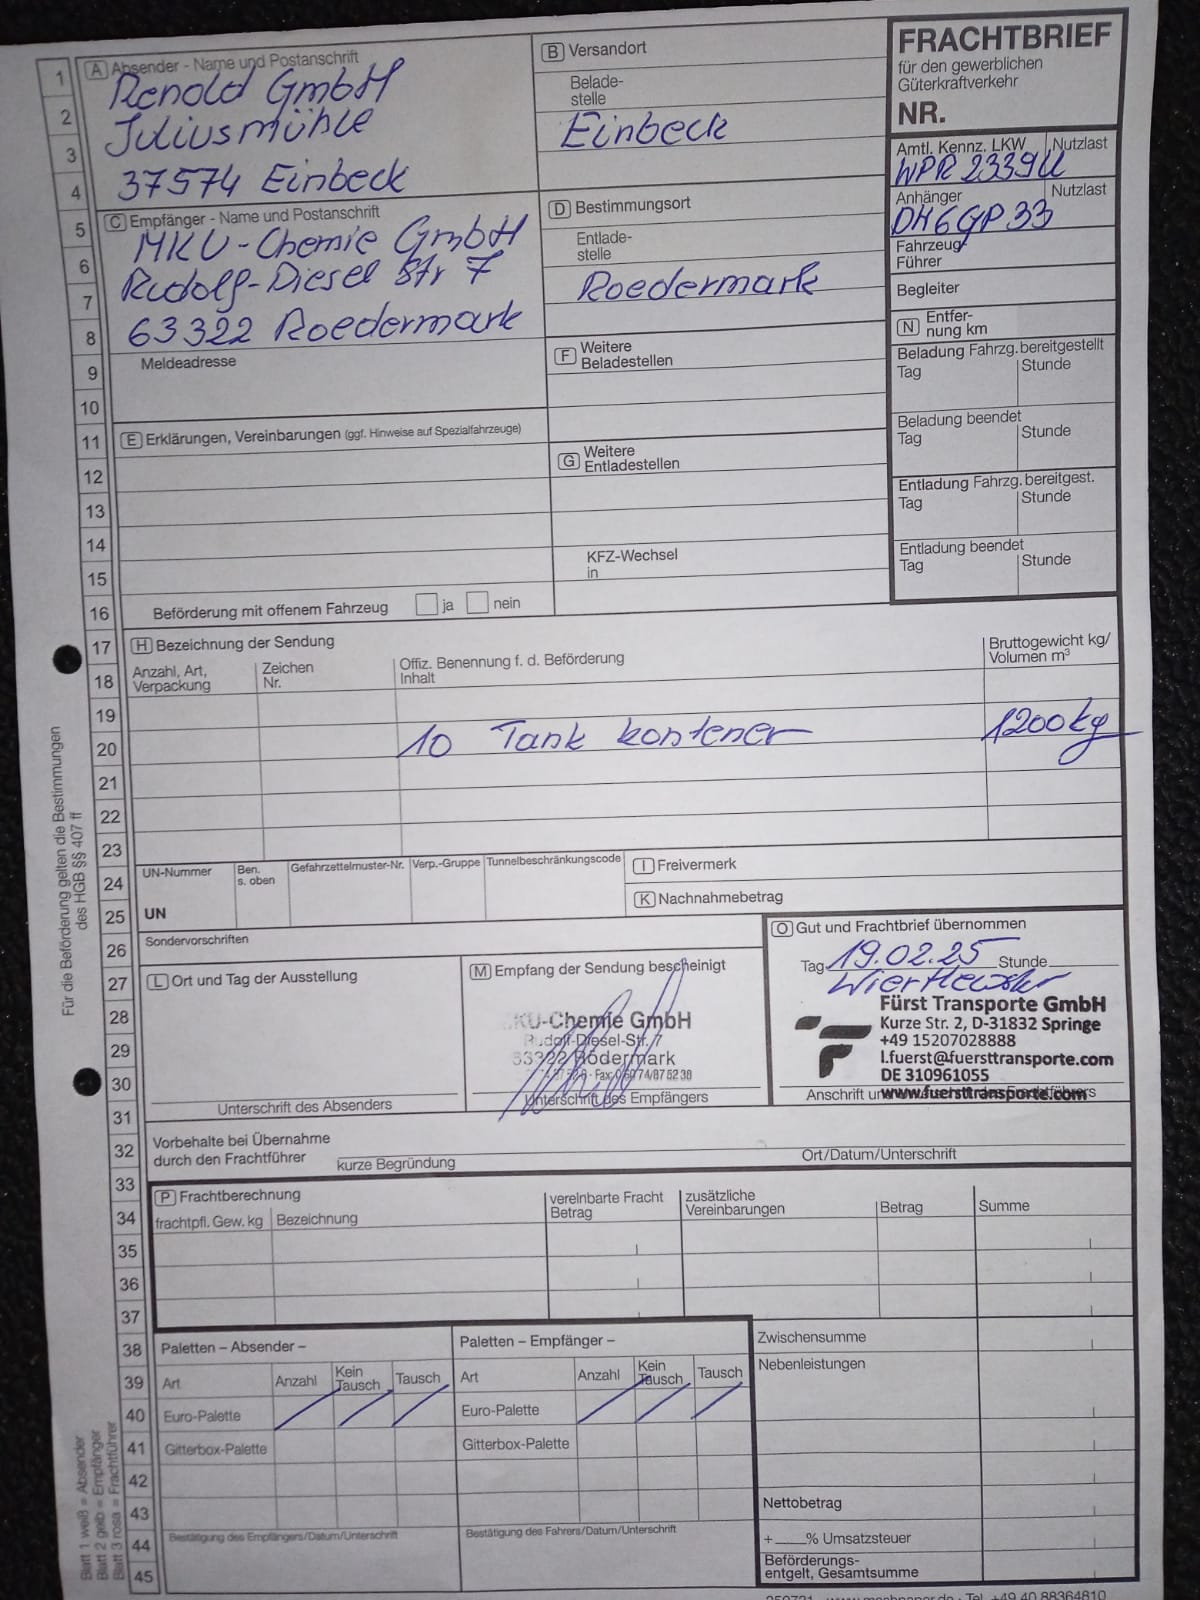 A Absender - Name und Postanschrift
Renold GmbH
Juliusmühle
37574 Einbeck
B Versandort
Belade-
stelle
Einbeck
FRACHTBRIEF
für den gewerblichen
Güterkraftverkehr
NR.
Amtl. Kennz. LKW Nutzlast
WPR 2339U
Anhänger Nutzlast
DH6GP33
Fahrzeug
Führer
Begleiter
C Empfänger - Name und Postanschrift
MKU-Chemie GmbH
Rudolf-Diesel Str 7
63322 Roedermark
Meldeadresse
D Bestimmungsort
Entlade-
stelle
Roedermark
N Entfer-
nung km
Beladung Fahrzg. bereitgestellt
Tag Stunde
Beladung beendet
Tag Stunde
Entladung Fahrzg. bereitgest.
Tag Stunde
Entladung beendet
Tag Stunde
F Weitere
Beladestellen
E Erklärungen, Vereinbarungen (ggf. Hinweise auf Spezialfahrzeuge)
G Weitere
Entladestellen
KFZ-Wechsel
in
Beförderung mit offenem Fahrzeug ja nein
H Bezeichnung der Sendung
Anzahl, Art,
Verpackung
Zeichen
Nr.
Offiz. Benennung f. d. Beförderung
Inhalt
Bruttogewicht kg/
Volumen m³
10 Tank kontener 1200kg
UN-Nummer
UN
Ben.
s. oben
Gefahrzettelmuster-Nr.
Verp.-Gruppe
Tunnelbeschränkungscode
I Freivermerk
K Nachnahmebetrag
Sondervorschriften
L Ort und Tag der Ausstellung
Unterschrift des Absenders
M Empfang der Sendung bescheinigt
KU-Chemie GmbH
Rudolf-Diesel-Str. 7
63322 Rödermark
Fax: 0 60 74/87 52 38
Unterschrift des Empfängers
O Gut und Frachtbrief übernommen
Tag 19.02.25 Stunde
Fürst Transporte GmbH
Kurze Str. 2, D-31832 Springe
+49 15207028888
l.fuerst@fuersttransporte.com
DE 310961055
www.fuersttransporte.com
Vorbehalte bei Übernahme
durch den Frachtführer
kurze Begründung
Ort/Datum/Unterschrift
P Frachtberechnung
frachtpfl. Gew. kg
Bezeichnung
vereinbarte Fracht
Betrag
zusätzliche
Vereinbarungen
Betrag
Summe
Paletten – Absender –
Art Anzahl Kein
Tausch Tausch
Euro-Palette
Gitterbox-Palette
Bestätigung des Empfängers/Datum/Unterschrift
Paletten – Empfänger –
Art Anzahl Kein
Tausch Tausch
Euro-Palette
Gitterbox-Palette
Bestätigung des Fahrers/Datum/Unterschrift
Zwischensumme
Nebenleistungen
Nettobetrag
+ % Umsatzsteuer
Beförderungs-
entgelt, Gesamtsumme
Für die Beförderung gelten die Bestimmungen
des HGB §§ 407 ff
Blatt 1 weiß = Absender
Blatt 2 gelb = Empfänger
Blatt 3 rosa = Frachtführer
1
2
3
4
5
6
7
8
9
10
11
12
13
14
15
16
17
18
19
20
21
22
23
24
25
26
27
28
29
30
31
32
33
34
35
36
37
38
39
40
41
42
43
44
45